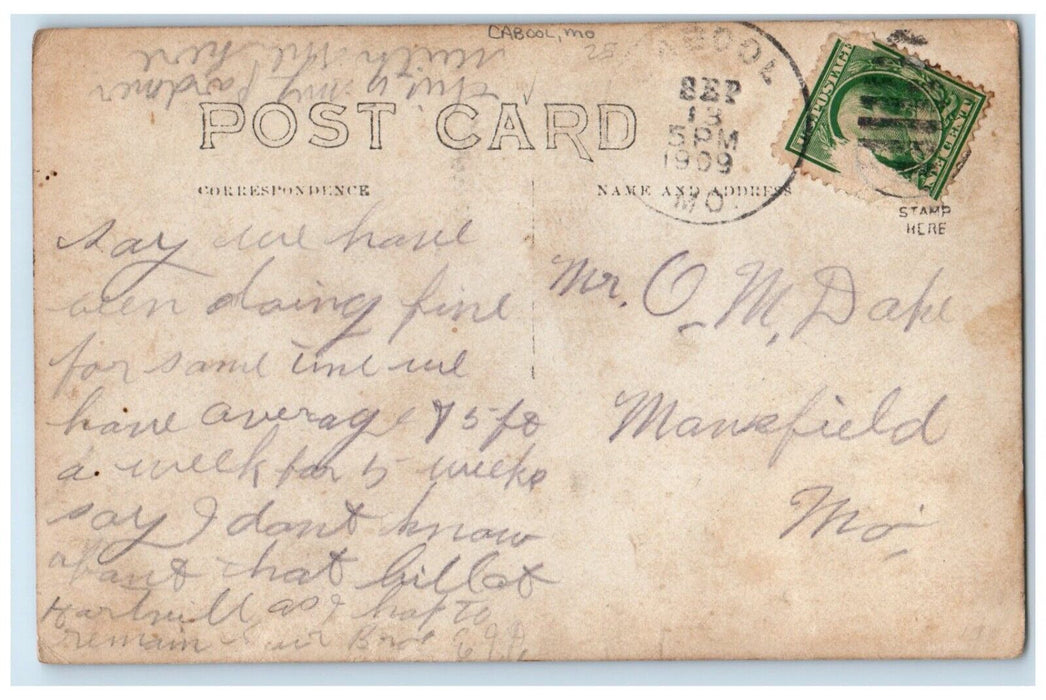 CABOOL, MO
this is my pardner
with me here
POST CARD
CORRESPONDENCE
NAME AND ADDRESS
STAMP
HERE
CABOOL
SEP
13
5 PM
1909
MO.
say we have
been doing fine
for same time we
have average 75 ft
a week for 5 weeks
say I dont know
about that
Hartvill as I hop to
remain Bro
Mr. O. M. Dake
Mansfield
Mo.